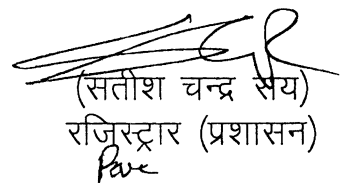 (सतीश चन्द्र सेय)
रजिस्ट्रार (प्रशासन)